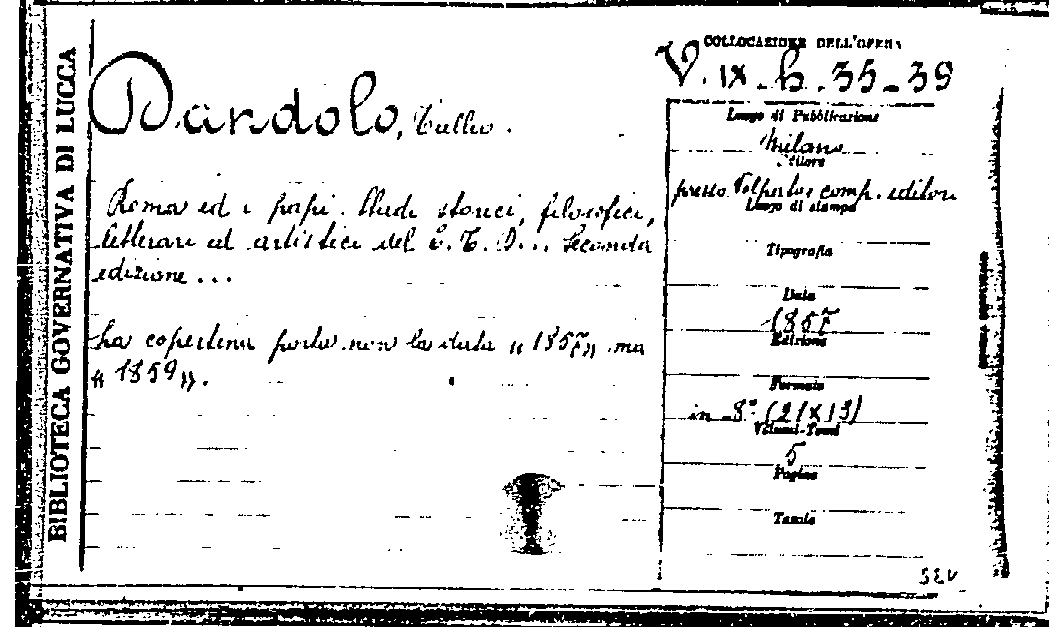 BIBLIOTECA GOVERNATIVA DI LUCCA
COLLOCAZIONE DELL'OPERA
V. IX. h. 35-39
Dandolo, Tullio.
Roma ed i papi. Studi storici, filosofici,
letterari ed artistici del C. T. D... Seconda
edizione...
La copertina porta non la data « 1857» ma
« 1859».
Luogo di Pubblicazione
Milano
Editore
presso Volpato e comp. editori
Luogo di stampa
Tipografia
Data
1857
Edizione
Formato
in 8° (21X13)
Volumi-Tomi
5
Pagine
Tavole